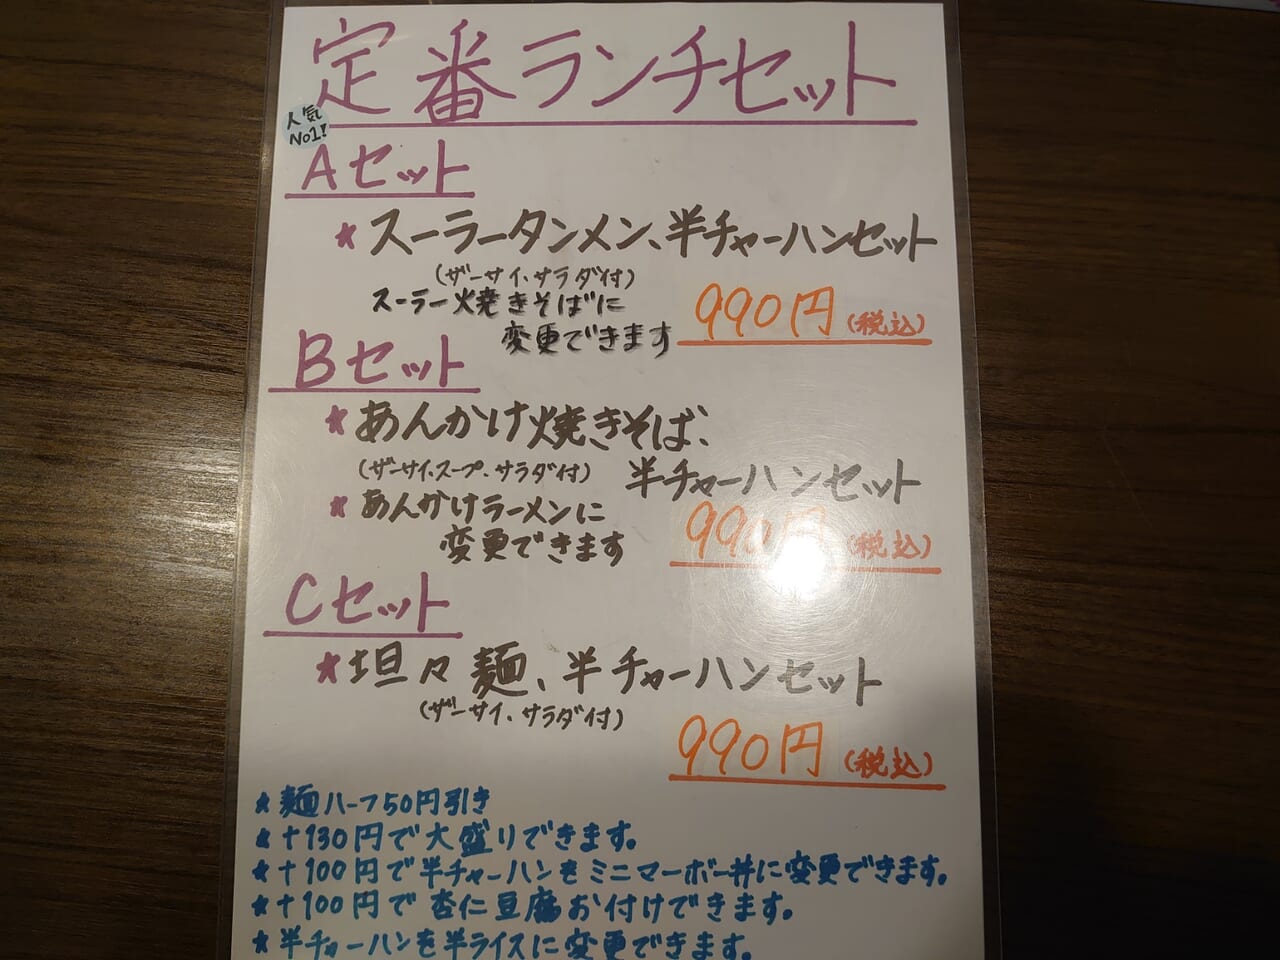 定番ランチセット
人気
No1!
Aセット
★スーラータンメン、半チャーハンセット
(ザーサイ、サラダ付)
スーラー焼きそばに
変更できます
990円(税込)
Bセット
★あんかけ焼きそば、
(ザーサイ、スープ、サラダ付) 半チャーハンセット
★あんかけラーメンに
変更できます
990円(税込)
Cセット
★坦々麺、半チャーハンセット
(ザーサイ、サラダ付)
990円(税込)
★麺ハーフ50円引き
★+130円で大盛りできます。
★+100円で半チャーハンをミニマーボー丼に変更できます。
★+100円で杏仁豆腐お付けできます。
★半チャーハンを半ライスに変更できます。